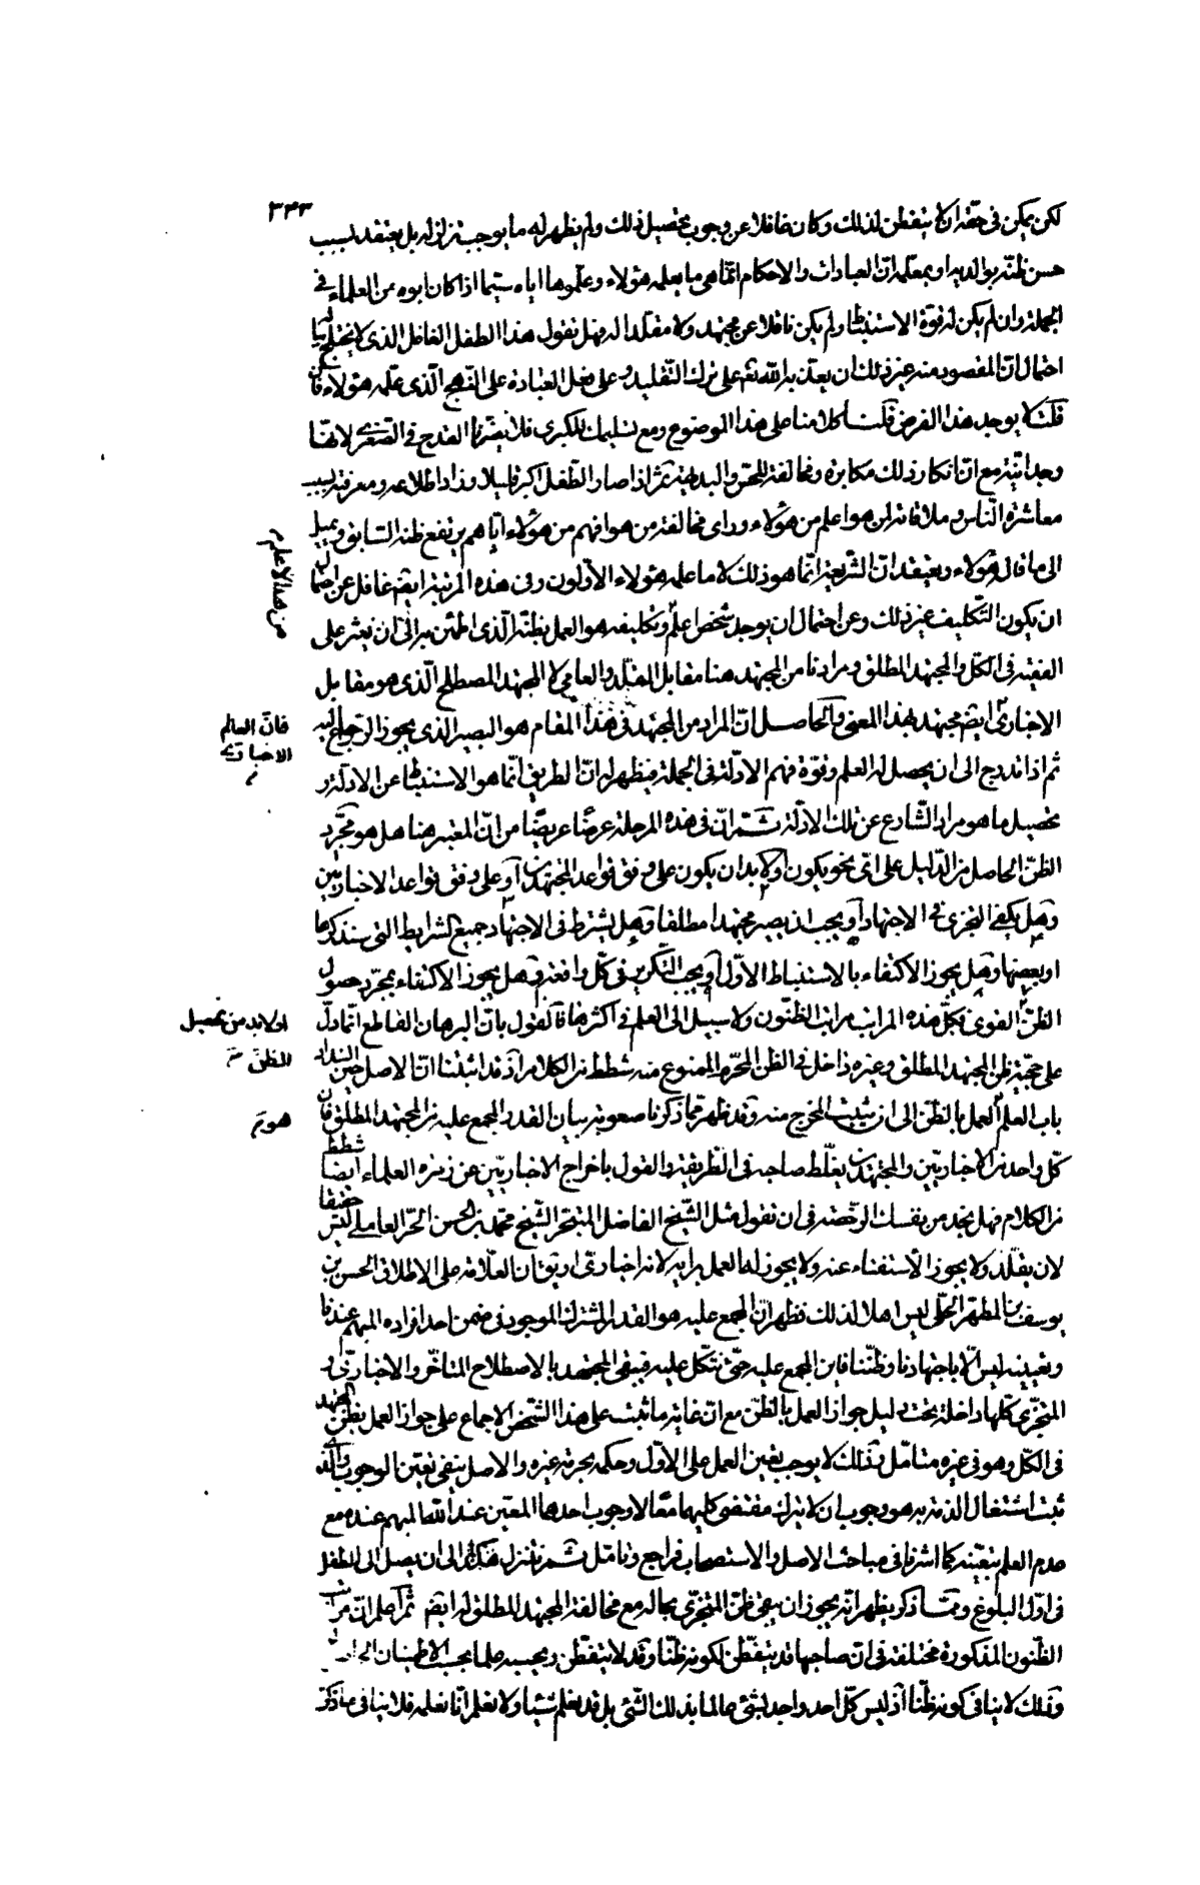 ٣٤٣
لكن يمكن فى حقه ان لا يتفطن لذلك وكان غافلا عن وجوب تحصيل ذلك ولم يظهر له ما يوجب تزلزله بل يعتقد بسبب
حسن ظنه بوالديه او بمعلمه ان العبادات والاحكام انما هى ما يعلمه هؤلاء وعلموها اياه سيما اذا كان ابوه من العلماء فى
الجملة وان لم يكن له قوة الاستنباط ولم يكن ناقلا عن مجتهد ولا مقلدا له فهل تقول هذا الطفل الغافل الذى لا يختلج بباله
احتمال ان المقصود منه غير ذلك ان يعذبه الله تعم على ترك التقليد وعلى فعل العبادة على النهج الذى علمه هؤلاء فان
قلت لا يوجد هذا الفرض قلنا كلامنا على هذا الموضوع ومع تسليمك للكبرى فلا يضرنا القدح فى الصغرى لانها
وجدانية مع ان انكار ذلك مكابرة ومخالفة للحس والبديهة ثم اذا صار الطفل اكبر قليلا وزاد اطلاعه ومعرفته بسبب
معاشرة الناس وملاقاته لمن هو اعلم من هؤلاء وراى مخالفة من هو افهم من هؤلاء اياهم يرتفع ظنه السابق ويميل
الى ما قال هؤلاء ويعتقد ان الشريعة انما هو ذلك لا ما علمه هؤلاء الأولون وفى هذه المرتبة ايضم غافل عن احتمال
ان يكون التكليف غير ذلك وعن احتمال ان يوجد شخص اعلم وتكليفه هو العمل بظنه الذى اطمئن به الى ان يعثر على
من هذا الاعلم
الفقيه فى الكل والمجتهد المطلق ومرادنا من المجتهد هنا مقابل المقلد والعامى لا المجتهد المصطلح الذى هو مقابل
الاخبارى ايضم مجتهد بهذا المعنى والحاصل ان المراد من المجتهد فى هذا المقام هو البصير الذى يجوز الرجوع اليه
فان العالم
الاخبارى
ثم اذا تدرج الى ان يحصل له العلم وقوة فهم الادلة فى الجملة فيظهر له ان الطريق انما هو الاستنباط عن الادلة و
تحصيل ما هو مراد الشارع عن تلك الادلة ثم ان فى هذه المرحلة عرضا عريضا من ان المعتبر هنا هل هو مجرد
الظن الحاصل من الدليل على اى نحو يكون او لا بد ان يكون على وفق قواعد المجتهدين او على وفق قواعد الاخباريين
وهل يكفى التجزى فى الاجتهاد او يجب ان يصير مجتهدا مطلقا وهل يشترط فى الاجتهاد جميع الشرايط التى سنذكرها
او بعضها وهل يجوز الاكتفاء بالاستنباط الاول او يجب التكرير فى كل واقعة وهل يجوز الاكتفاء بمجرد حصول
الظن القوى فكل هذه المراتب مراتب الظنون ولا سبيل الى العلم فى اكثرها فالقول بان البرهان القاطع انما دل
او لا بد من تحصيل
الظن
على حجية ظن المجتهد المطلق وغيره داخل فى الظن المحرم الممنوع منه شطط من الكلام اذ قد اثبتنا ان الاصل حين انسداد
باب العلم العمل بالظن الى ان يثبت المخرج منه وقد ظهر مما ذكرنا صعوبة بيان القدر المجمع عليه من المجتهد المطلق فان
هو تم
كل واحد من الاخباريين والمجتهدين يغلط صاحبه فى الطريقة والقول باخراج الاخباريين عن زمرة العلماء ايضا شطط
من الكلام فهل تجد من نفسك الرخصة فى ان تقول مثل الشيخ الفاضل المتبحر الشيخ محمد بن الحسن الحر العاملى ليس حقيقا
لان يقلد ولا يجوز الاستفتاء عنه ولا يجوز له العمل برايه لانه اخبارى او تق ان العلامة على الاطلاق الحسن بن
يوسف بن المطهر الحلى ليس اهلا لذلك فظهر ان المجمع عليه هو القدر المشترك الموجود فى ضمن احد افراده المبهم عندنا
وتعيينه ليس الا باجتهادنا وظننا فاين المجمع عليه حتى نتكل عليه فيبقى المجتهد بالاصطلاح المتاخر والاخبارى و
المتجزى كلها داخلة تحت دليل جواز العمل بالظن مع ان غاية ما ثبت على هذا الشخص الاجماع على جواز العمل بظن المجتهد
فى الكل وهو فى غيره متامل وذلك لا يوجب تعين العمل على الاول وحكمه بحرمة غيره والاصل ينفى تعين الوجوب والذى
ثبت اشتغال الذمة به هو وجوب ان لا يترك مقتضى كليهما معا لا وجوب احدهما المعين عند الله المبهم عنده مع
عدم العلم بتعينه كما اشرنا فى مباحث الاصل والاستصحاب فراجع وتامل ثم تنزل هكذا الى ان يصل الى الطفل
فى اول البلوغ ومما ذكر يظهر انه يجوز ان يبقى ظن المتجزى بحاله مع مخالفة المجتهد المطلق له ايضم ثم اعلم ان مراتب
الظنون المذكورة مختلفة فى ان صاحبها قد يتفطن لكونه ظنا وقد لا يتفطن ويحسبه علما بحسب الاطمينان
وذلك لا ينافى كونه ظنا اذ ليس كل احد واجد لشئ عالما بذلك الشئ بل قد يعلم شيئا ولا نعلم انا نعلمه فلا ينافى ما ذكر